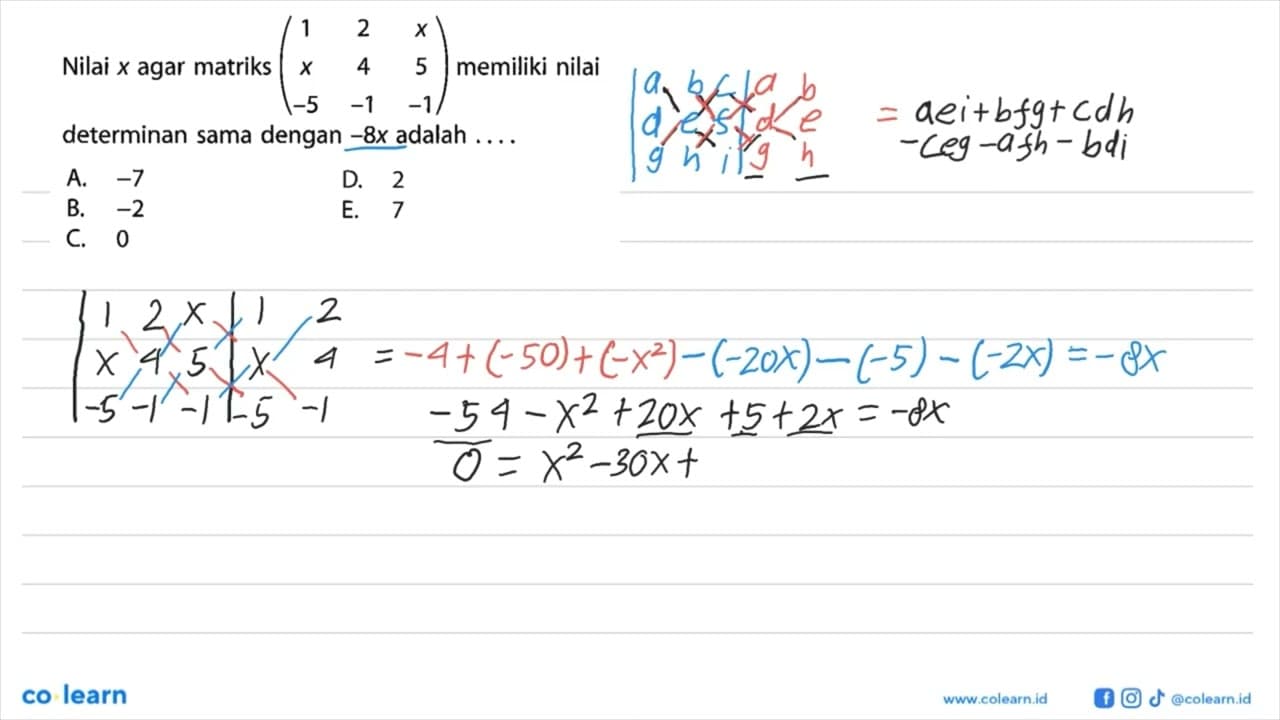 Nilai x agar matriks (1 2 x
x 4 5
-5 -1 -1) memiliki nilai
determinan sama dengan -8x adalah ....
A. -7
B. -2
C. 0
D. 2
E. 7
a b c a b
d e f d e
g h i g h
= aei+bfg+cdh
-ceg-afh-bdi
1 2 x 1 2
x 4 5 x 4
-5 -1 -1 -5 -1
= -4+(-50)+(-x²)-(-20x)-(-5)-(-2x)=-8x
-54-x²+20x+5+2x=-8x
0=x²-30x+
co learn
www.colearn.id
@colearn.id